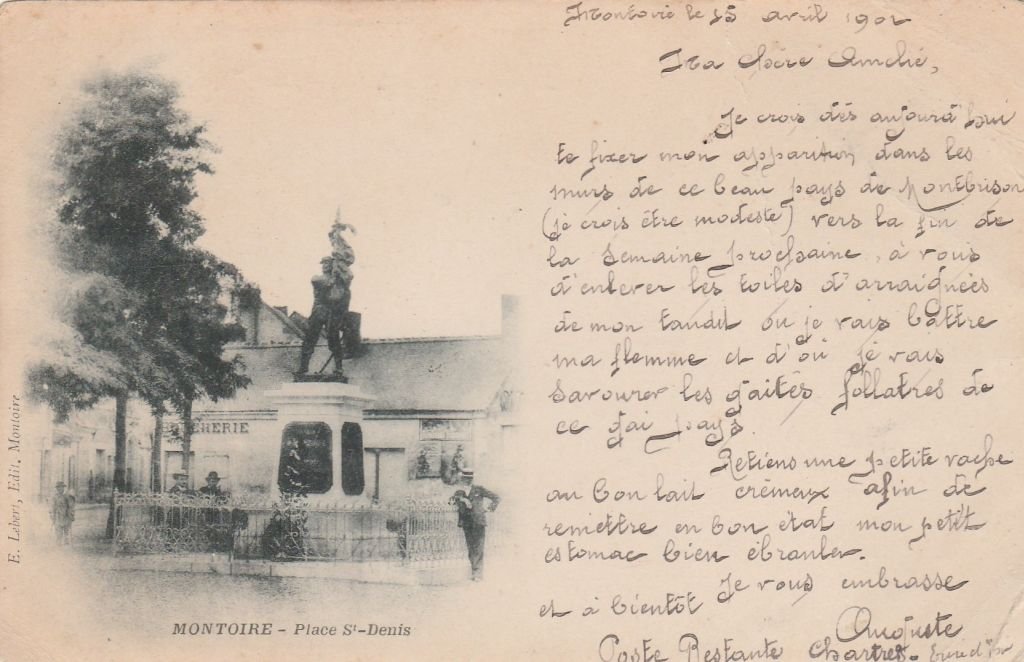 Montoire le 15 avril 1902
Ma Chère Amelie,
Je crois dès aujourd'hui
te fixer mon apparition dans les
murs de ce beau pays de Montbrison
(je crois être modeste) vers la fin de
la semaine prochaine, à vous
d'enlever les toiles d'arraignées
de mon taudit ou je vais battre
ma flemme et d'où je vais
savourer les gaités follatres de
ce gai pays.
Retiens une petite vache
au bon lait crémeux afin de
remettre en bon état mon petit
estomac bien ébranler.
Je vous embrasse
et à bientôt
Auguste
Poste Restante Chartres.
CHERIE
E. Lebert, Edit. Montoire
MONTOIRE - Place St-Denis